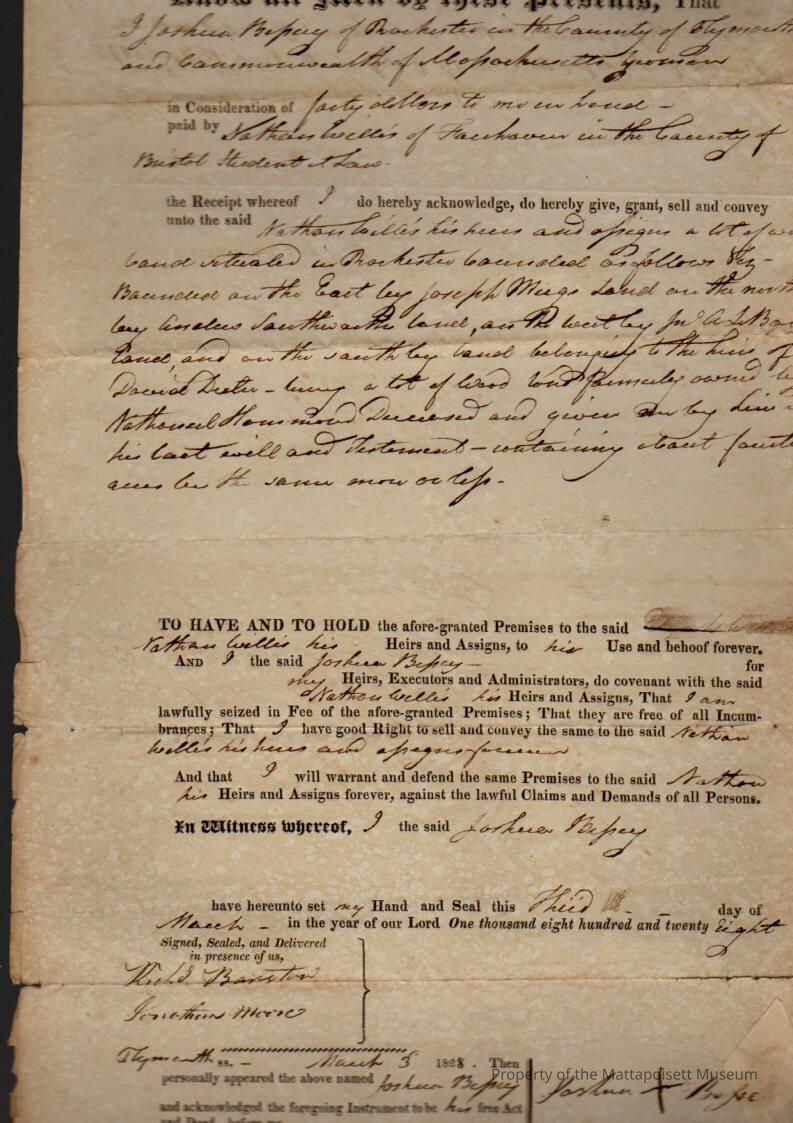 Know all Men by these Presents, That
I Joshua Bessey of Rochester in the County of Plymouth
and Commonwealth of Massachusetts Yeoman
in Consideration of forty dollers to me in hand -
paid by Nathan Willis of Fairhaven in the County of
Bristol Student at Law
the Receipt whereof I do hereby acknowledge, do hereby give, grant, sell and convey
unto the said Nathan Willis his heirs and assigns a lot of
land situated in Rochester bounded as follows Viz -
Bounded on the East by Joseph Meigs Land on the north
by Andrew Southworths land, on the west by Jno A Le Bar
land, and on the south by land belonging to the heirs of
David Dexter - being a lot of Wood land formerly owned by
Nathaniel Hammond Deceased and given by him
his last will and Testament - containing about
acres be the same more or less -
TO HAVE AND TO HOLD the afore-granted Premises to the said
Nathan Willis his Heirs and Assigns, to his Use and behoof forever.
AND I the said Joshua Bessey - for
my Heirs, Executors and Administrators, do covenant with the said
Nathan Willis his Heirs and Assigns, That I am
lawfully seized in Fee of the afore-granted Premises; That they are free of all Incum-
brances; That I have good Right to sell and convey the same to the said Nathan
Willis his heirs and assigns forever
And that I will warrant and defend the same Premises to the said Nathan
his Heirs and Assigns forever, against the lawful Claims and Demands of all Persons.
In Witness whereof, I the said Joshua Bessey
have hereunto set my Hand and Seal this Third - - day of
March - in the year of our Lord One thousand eight hundred and twenty Eight
Signed, Sealed, and Delivered
in presence of us,
Barstow
Jonathan Moore
Plymouth ss. - March 3 1828. Then
personally appeared the above named Joshua Bessey
Joshua X Besse
and acknowledged the foregoing Instrument to be his free Act
and Deed, before me
Property of the Mattapoisett Museum